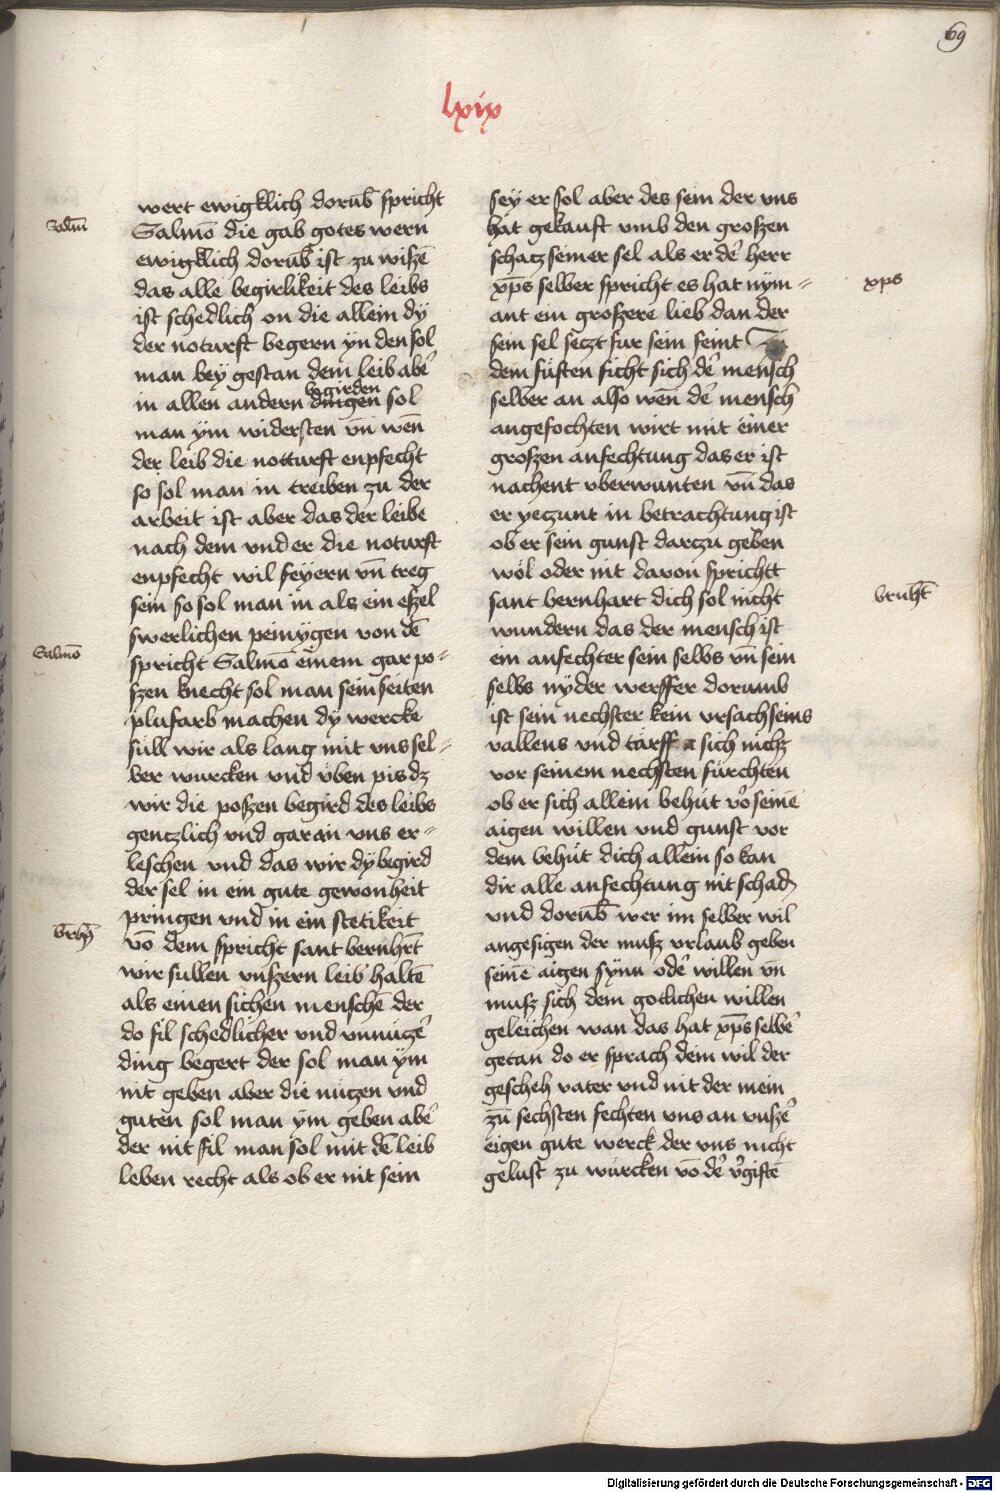 69
lxix
wert ewigklich dorub̄ spricht
Salmō die gab gotes wern
ewigklich dorub̄ ist zu wiszē
das alle begirlikeit des leibs
ist schedlich on die allein dÿ
der noturft begern yn den sol
man beÿ gestan dem leib abe᷑
begirden
in allen andern dingen sol
man ÿm widersten vn̄ wen̄
der leib die notturft enpfecht
so sol man in treiben zu der
arbeit ist aber das der leibe
nach dem vnd er die noturft
enpfecht wil feÿern vn̄ treg
sein so sol man in als ein eszel
swerlichen peinÿgen von dē
spricht Salmō einem gar po=
szen knecht sol man sein seiten
plufarb machen dÿ wercke
sull wir als lang mit vns sel=
ber wurcken vnd vben pis dz
wir die poszen begird des leibs
gentzlich vnd gar an vns er=
leschen vnd das wir dÿ begird
der sel in ein gute gewonheit
pringen vnd in ein stetikeit
vō dem spricht sant bernhrt̄
wir sullen vnszern leib haltē
als einen sichen menschē der
do fil schedlicher vnd vnnucze᷑
ding begert der sol man ÿm
nit geben aber die nuczen vnd
guten sol man ÿm geben abe᷑
der nit fil man sol mit dē leib
leben recht als ob er nit sein
seÿ er sol aber des sein der vns
hat gekauft vmb den groszen
schacz seiner sel als er de᷑ herr
xp̄s selber spricht es hat nÿm=
ant ein groszere lieb dan der
sein sel seczt fur sein feint
dem fuften ficht sich de᷑ mensch
selber an also wen̄ de᷑ mensch
angefochten wirt mit einer
groszen anfechtung das er ist
nachent vberwunten vn̄ das
er yeczunt in betrachtung ist
ob er sein gunst darczu geben
wöl oder nit davon sprichtt
sant bernhart dich sol nicht
wundern das der mensch ist
ein anfechter sein selbs vn̄ sein
selbs nÿder werffer dorumb
ist sein nechster kein vrsach seins
vallens vnd tarff sich nichz
vor seinem nechsten fürchten
ob er sich allein behüt vo᷑ seinē
aigen willen vnd gunst vor
dem behüt dich allein so kan
dir alle anfechtung nit schadn̄
vnd dorub̄ wer im selber wil
angesigen der musz vrlaub geben
seinē aigen synn ode᷑ willen vn̄
musz sich dem gotlichen willen
geleichen wan das hat xp̄s selbe᷑
getan do er sprach dein wil der
gescheh vater vnd nit der mein
zū sechsten fechten vns an vnsze᷑
eigen gute werck der vns nicht
gelust zu wurcken vō de᷑ v᷑giftē
Salmō
brhr̄
xp̄s
brnh̄t